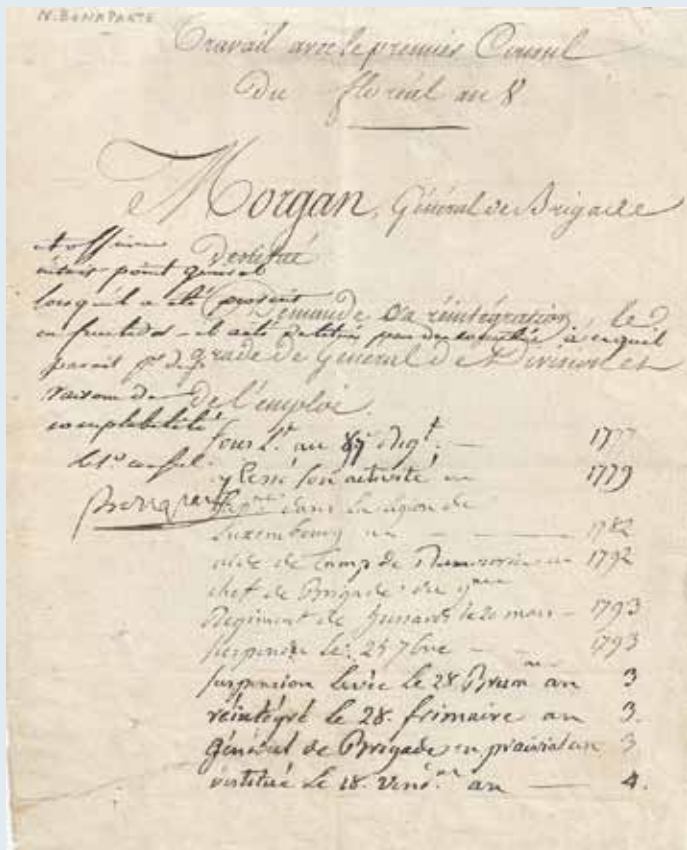 N. BONAPARTE
Travail avec le premier Consul
du floréal an 8
Morgan, Général de Brigade
destitué
Demande sa réintégration, le
grade de Général de Division et
de l'emploi.
cet officier
n'était point general
lorsqu'il a été proscrit
en fructidor - il a été destitué pour
parait
raison de
comptabilité
le 1er consul
Bonaparte
Sous Lt. au 87e Regt. — 1777
y Cessé son activité en 1779
Capne. dans la légion de
Luxembourg en — 1782
aide de Camp de Dumourier en 1792
chef de Brigade du
Regiment de hussards le 20 mars — 1793
suspendu le 25 7bre — 1793
suspension levée le 28 Brum.re an 3
réintégré le 28. frimaire an 3.
Général de Brigade en prairial an 3
destitué le 18. vend.re an — 4.